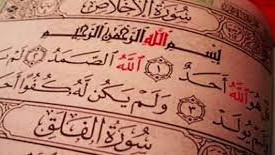 سُورَةُ الْإِخْلَاصِ
بِسْمِ اللَّهِ الرَّحْمَٰنِ الرَّحِيمِ
هُوَ اللَّهُ أَحَدٌ ١ اللَّهُ الصَّمَدُ ٢
يُولَدْ ٣ وَلَمْ يَكُن لَّهُ كُفُوًا
سُورَةُ الْفَلَقِ